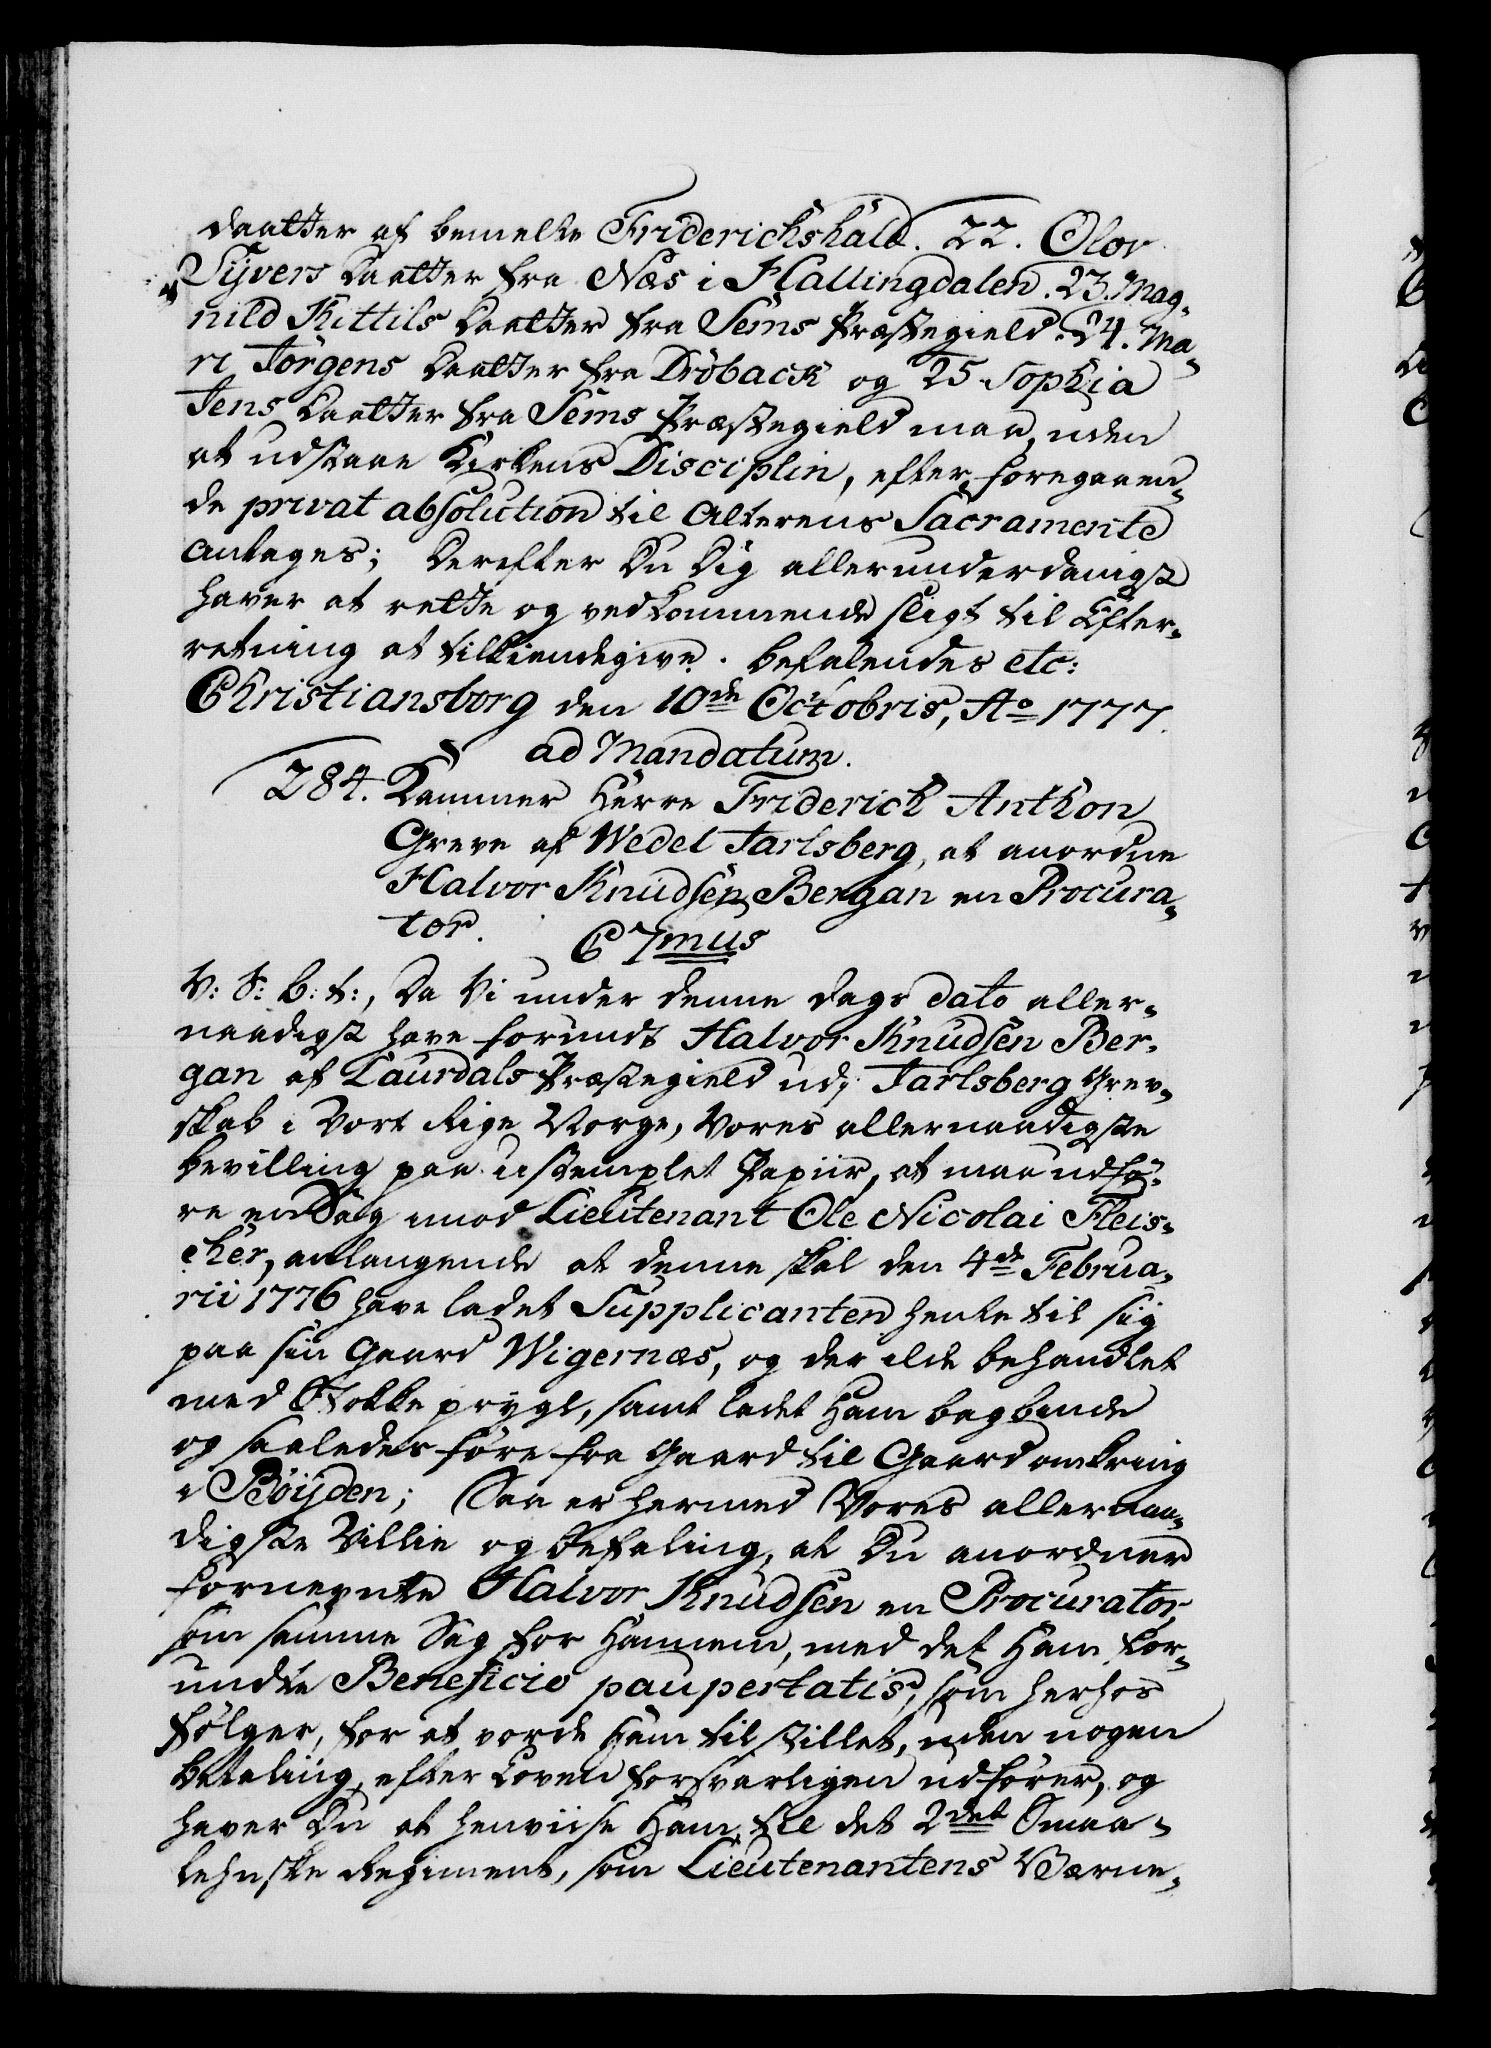 daatter af bemelte Friderichshald. 22. Olov
Sÿvers Daatter fra Næs i Hallingdalen. 23. Mag-
nild Kittils Daatter fra Sems Præstegield. 24. Ma-
ri Jörgens Daatter fra Dröback og 25 Sophia
Jens Daatter fra Sems Præstegield maa, uden
at udstaae Kirkens Disciplin, efter foregaaen-
de privat absolution til Alterens Sacramente
antages; Derefter Du Dig allerunderdanigst
haver at rette og vedkommende sligt til Efter-
retning at tilkiendegive. Befalendes etc:
Christiansborg den 10de Octobris, Ao 1777.
ad Mandatum.
284. Kammer Herre Friderich Anthon
Greve af Wedel Jarlsberg, at anordne
Halvor Knudsen Bergan en Procura-
tor. C 7mus
V: S: B: t:, Da Vi under denne Dags dato aller-
naadigst have forundt Halvor Knudsen Ber-
gan af Laurdals Præstegield udj Jarlsberg Grev-
skab i Vort Rige Norge, Vores allernaadigste
Bevilling paa ustemplet Papiir, at maa udfö-
re en Sag imod Lieutenant Ole Nicolai Fleis-
cher, anlangende at denne skal den 4de Februa-
rii 1776 have ladet Supplicanten hente til sig
paa sin Gaard Wigernæs, og der ilde behandlet
med Stokke prygl, samt ladet Ham bagbinde
og saaledes före fra Gaard til Gaard omkring
i Böÿden; Saa er hermed Vores allernaa-
digste Villie og Befaling, at Du anordner
fornevnte Halvor Knudsen en Procurator,
som samme Sag for Hannem, med det Ham for-
undte Beneficio paupertatis, som herhos
fölger, for at vorde Ham tilstillet, uden nogen
Betaling, efter Loven forsvarligen udförer, og
haver Du at henviise Ham til det 2det Smaa-
lehnske Regiment, som Lieutenantens Værne-